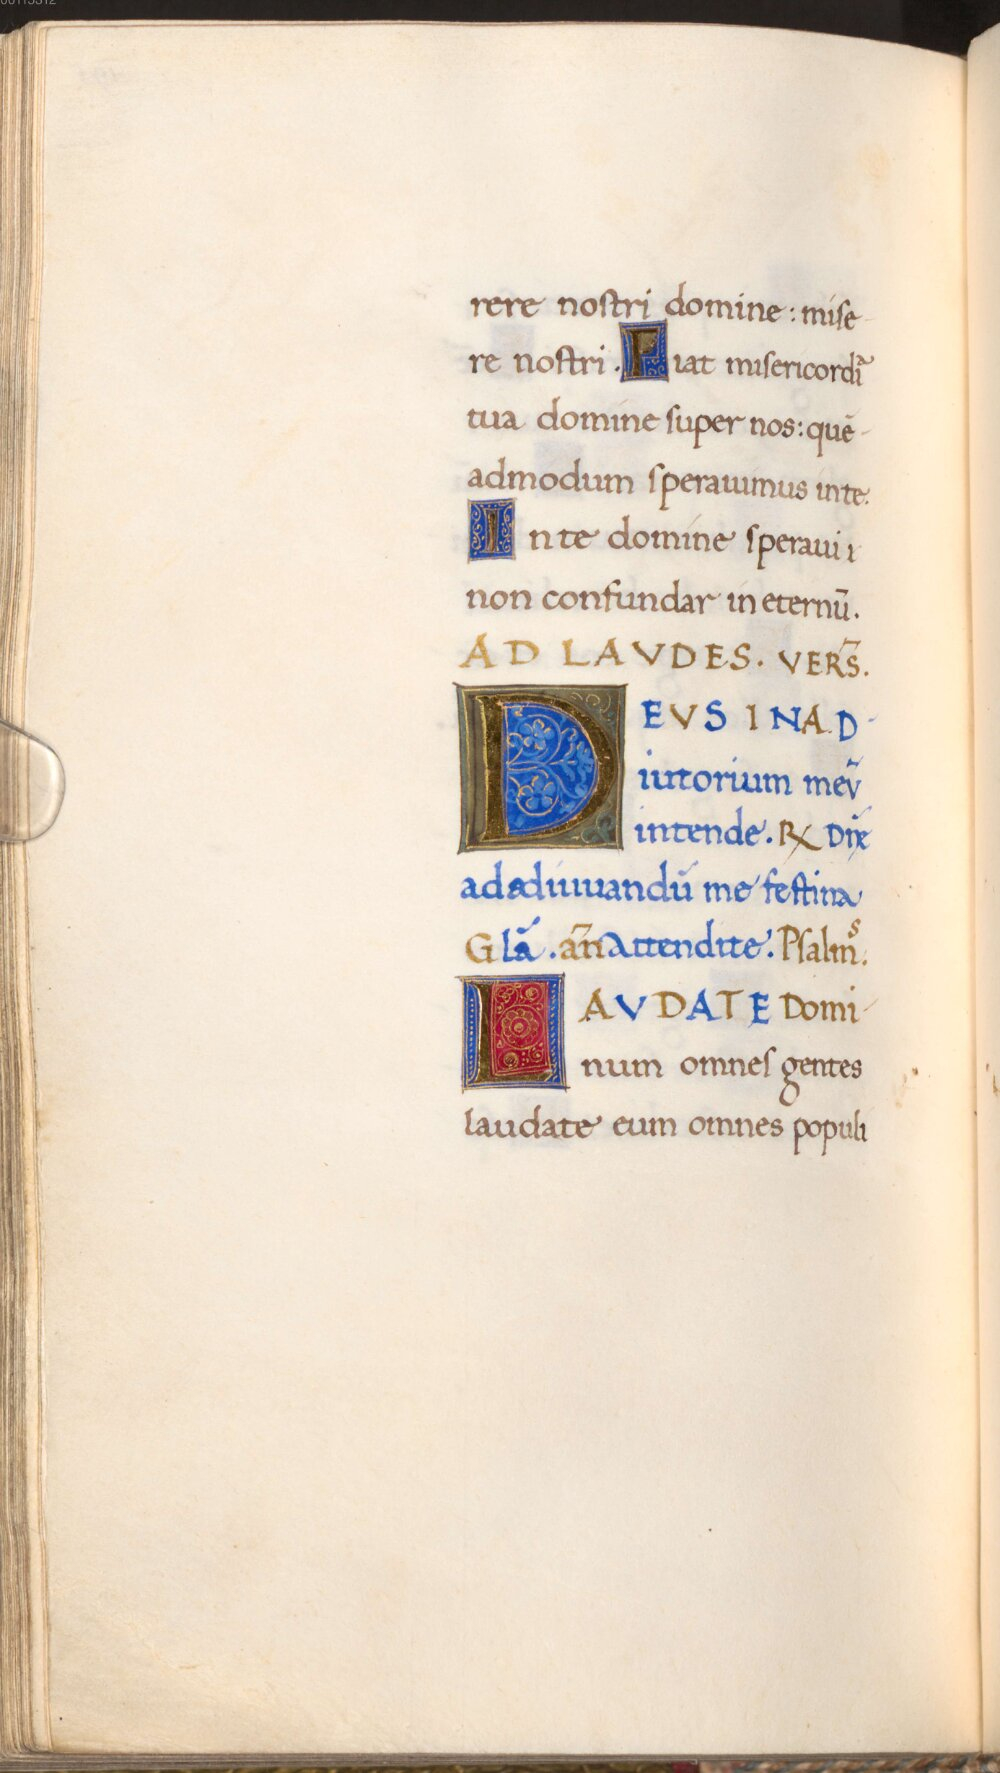 rere nostri domine: mise
re nostri. Fiat misericordia̅
tua domine super nos: quē
admodum sperauimus in te.
In te domine speraui i
non confundar in eternū.
AD LAVDES. VERS̄.
DEVS IN AD
iutorium meū
intende. ℞ Dn̄e
ad adiuuandū me festina
Glā. an̄ Attendite. Psalmˢ.
LAVDATE Domi
num omnes gentes
laudate eum omnes populi